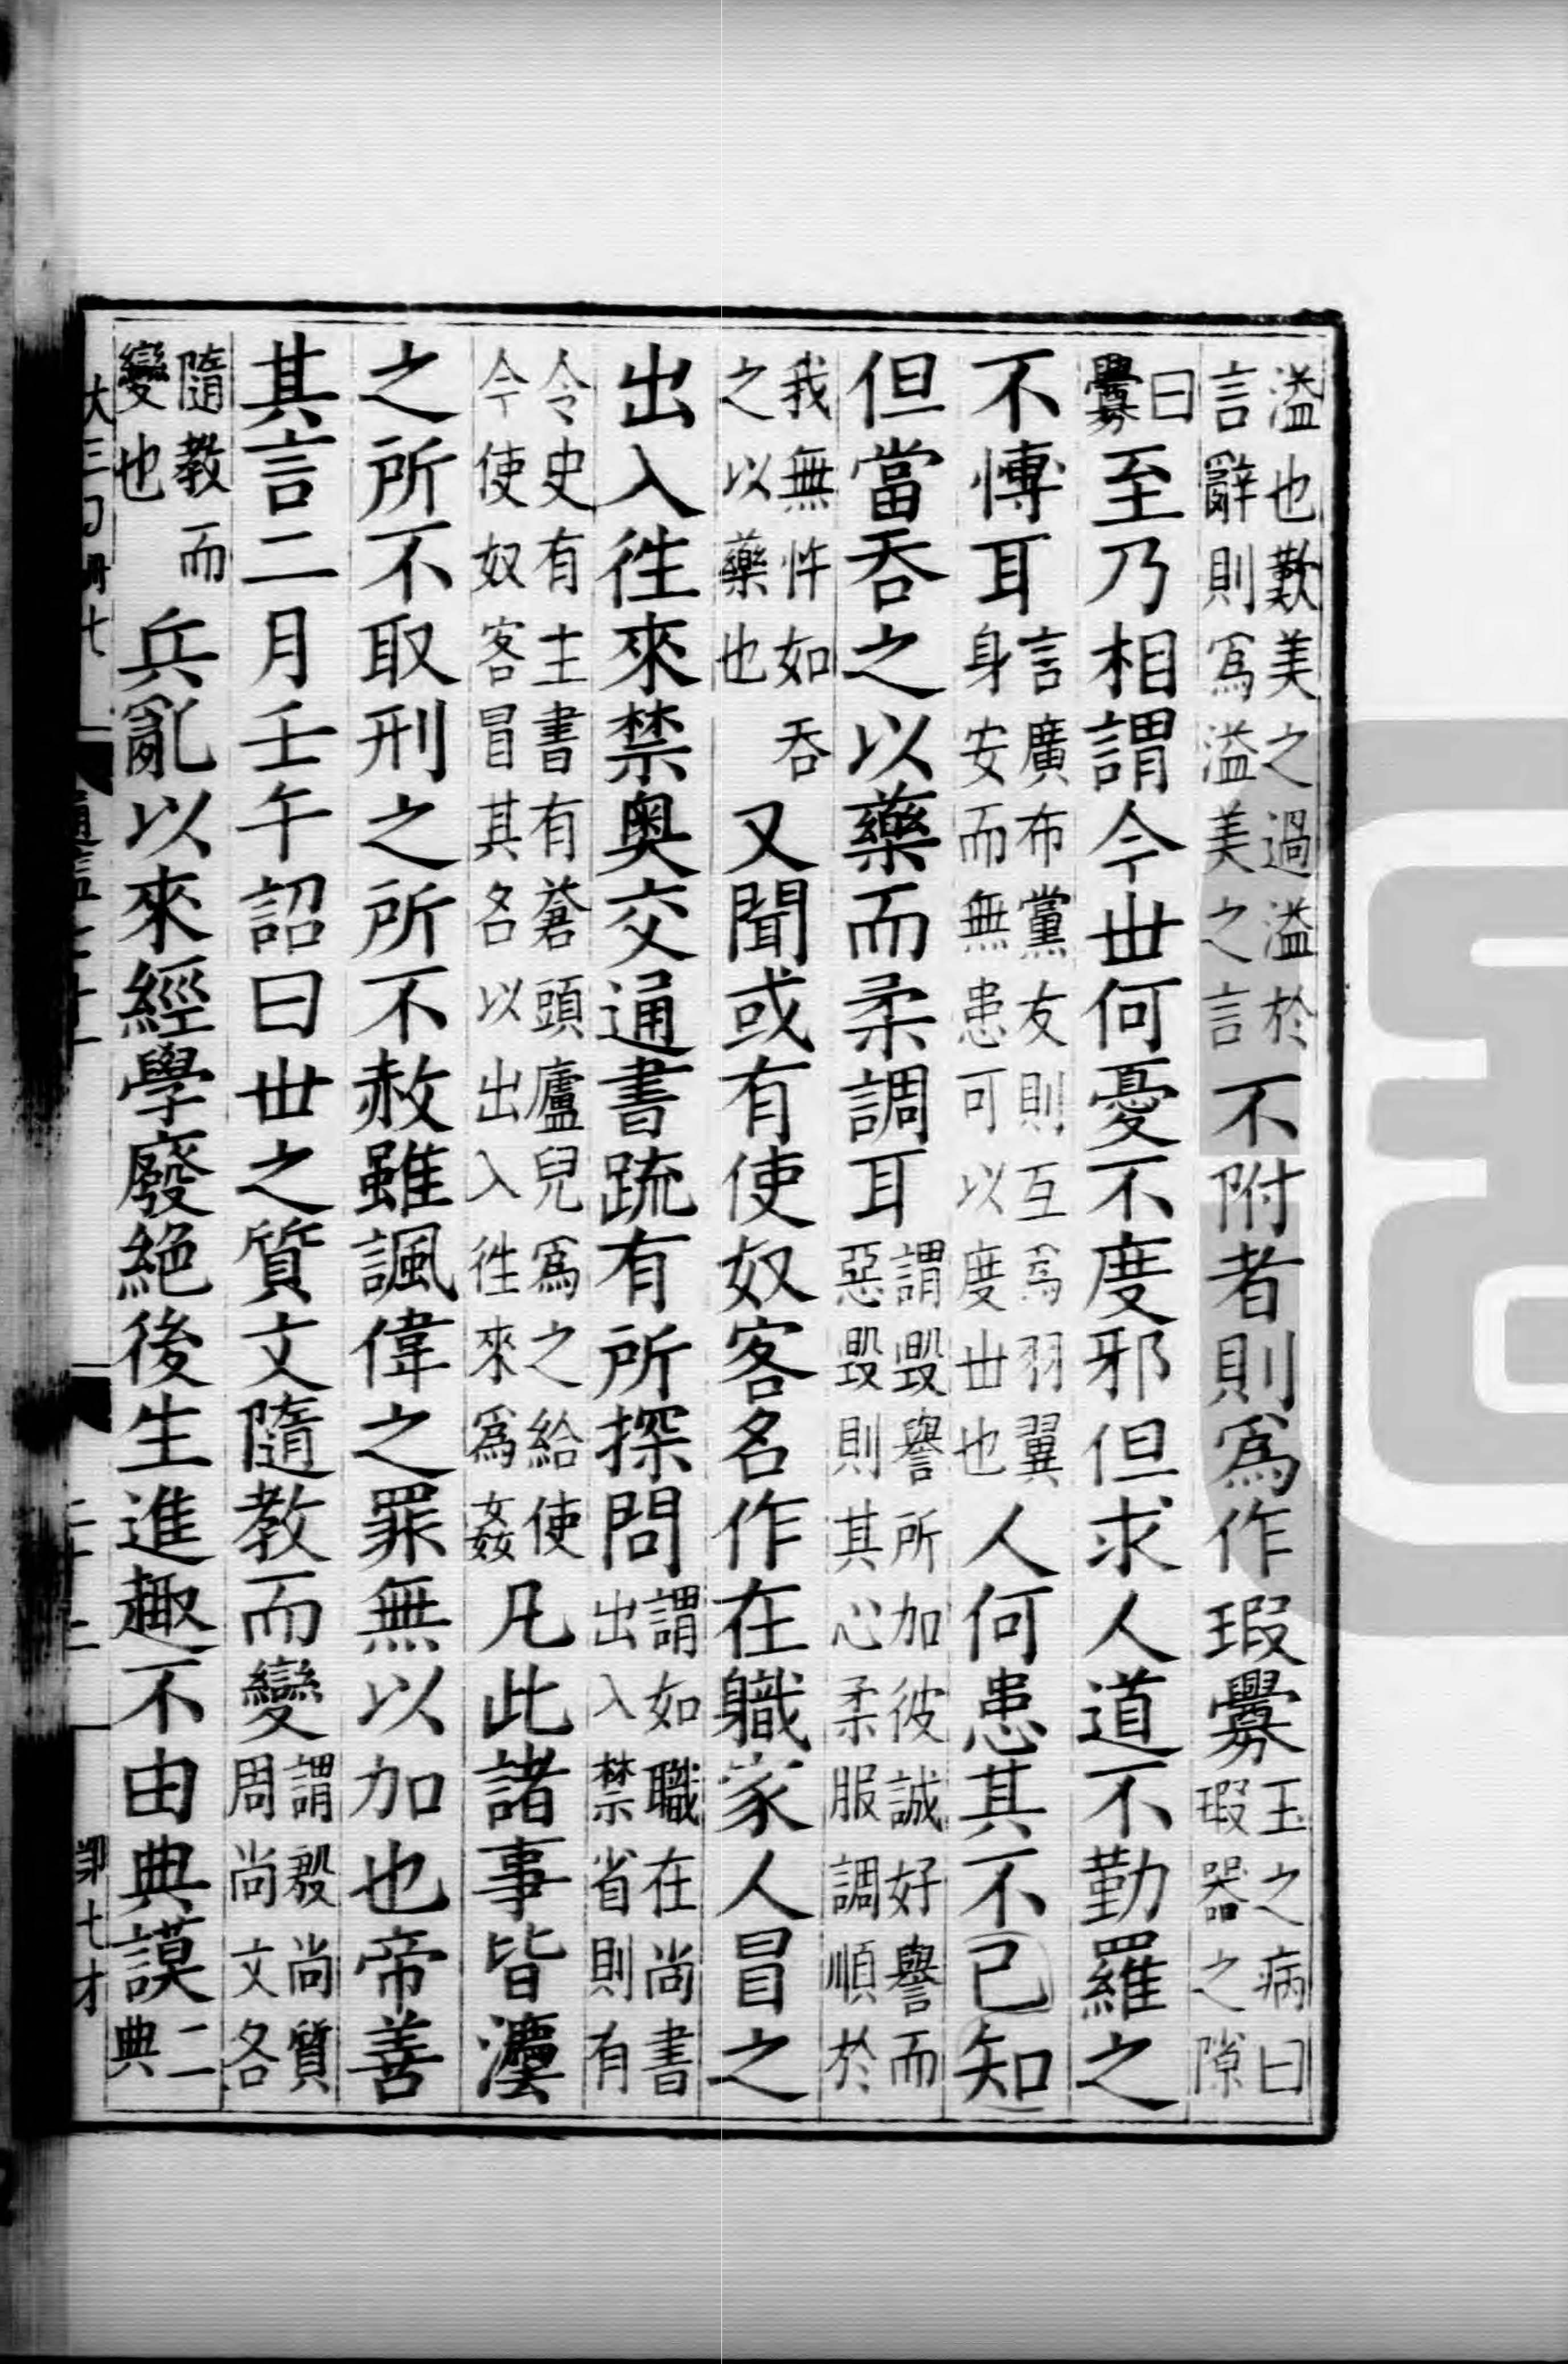 溢也歎美之過溢於言辭則爲溢美之言不附者則爲作瑕釁玉之病曰瑕器之隙
曰釁至乃相謂今世何憂不度邪但求人道不勤羅之
不愽耳言廣布黨友則互爲羽翼身安而無患可以度世也人何患其不己知
但當吞之以藥而柔調耳謂毀譽所加彼誠好譽而惡毀則其心柔服調順於
我無忤如吞之以藥也又聞或有使奴客名作在職家人冒之
出入徃來禁奥交通書疏有所探問謂如職在尚書出入禁省則有
令史有主書有蒼頭廬兒爲之給使今使奴客冒其名以出入徃來爲姦凡此諸事皆灋
之所不取刑之所不赦雖諷偉之罪無以加也帝善
其言二月壬午詔曰世之質文隨教而變謂殷尚質周尚文各
隨教而變也兵亂以來經學廢絶後生進趣不由典謨二典